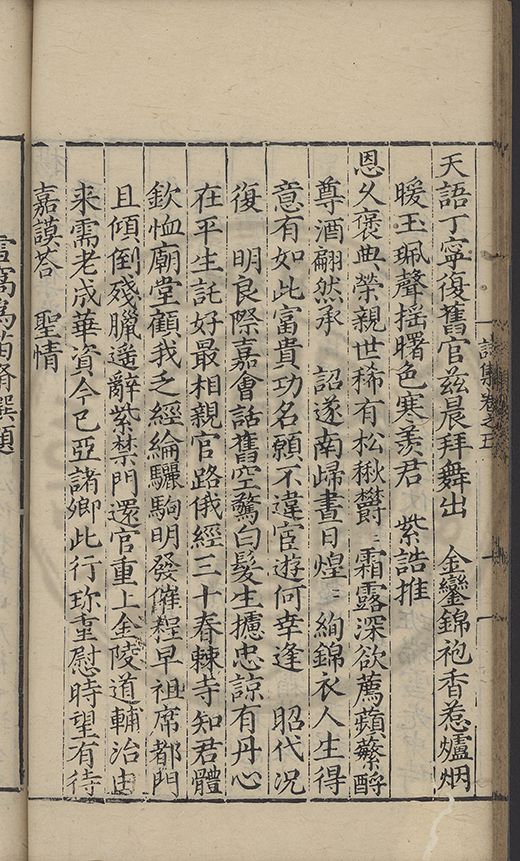 天語丁寧復舊官兹晨拜舞出　金鑾錦袍香惹爐烟
暖玉珮聲揺曙色寒羨君　紫誥推
恩久褒典榮親世稀有松楸欝〻霜露深欲薦蘋蘩酹
尊酒翩然承　詔遂南歸晝日煌〻絢錦衣人生得
意有如此富貴功名願不違宦遊何幸逢　昭代况
復　明良際嘉會話舊空驚白髮生攄忠諒有丹心
在平生託好最相親官路俄經三十春棘寺知君體
欽恤廟堂顧我乏經綸驪駒明發催程早祖席都門
且傾倒殘臘遥辭紫禁門還官重上金陵道輔治由
来需老成華資今已亞諸卿此行珎重慰時望有待
嘉謨荅　聖情
詩集卷之五